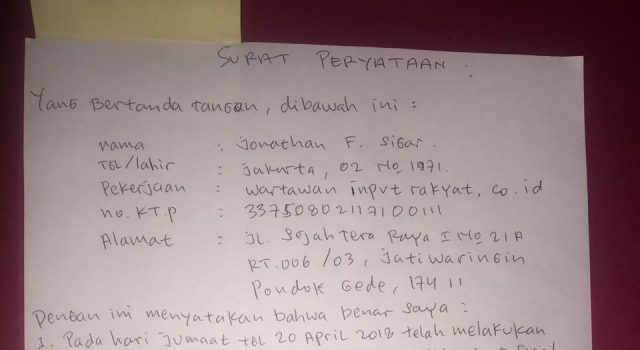 SURAT PERYATAAN :
Yang Bertanda tangan, dibawah ini :
nama : Jonathan F. Sigar.
TGL/lahir : Jakarta, 02 No 1971.
Pekerjaan : wartawan input rakyat, co.id
no. KT.P : 3375080211710011
Alamat : JL. Sejahtera Raya I No 21 A
RT.006 /03, Jatiwaringin
Pondok Gede, 17411
Dengan ini menyatakan bahwa benar saya :
1. Pada hari Jumaat tgl 20 April 2018 telah melakukan